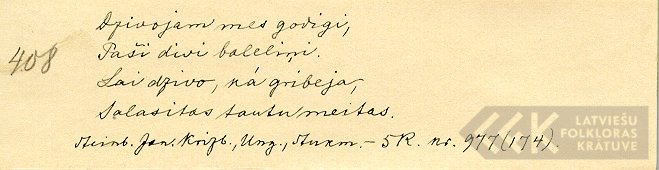 Dzivojam mes godigi,
408
Paši divi baleliņi.
Lai dzivo, ká gribeja,
Salasitas tautu meitas.
Jan. Krizb., Ung., – 5R. nr. 977(174).
LATVIEŠU
FOLKLORAS
KRĀTUVE